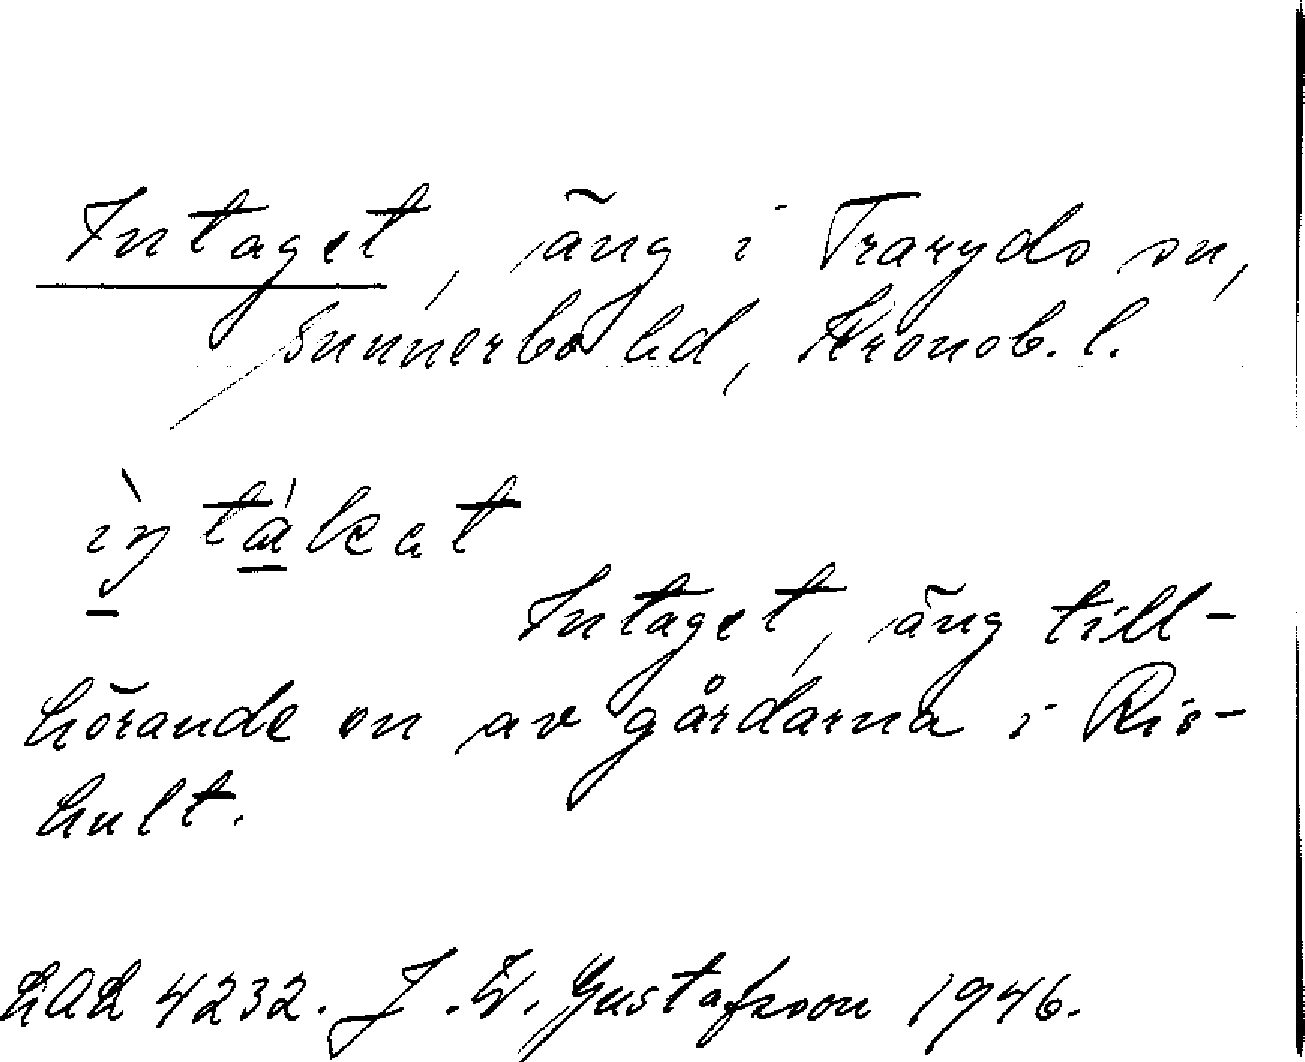 Intaget, äng i Traryds sn,
Sunnerbo hd, Kronob. l.
ìntákat
Intaget, äng till-
hörande en av gårdarna i Ris-
hult.
LAL 4232. J. W. Gustafsson 1946.